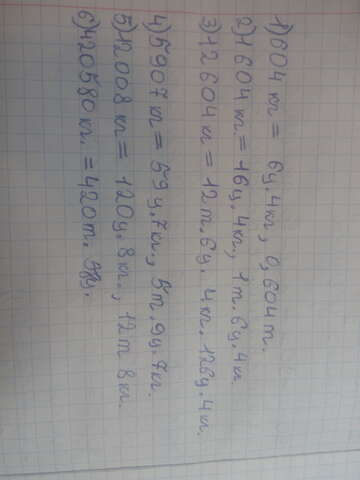 1) 604 кг = 6ц. 4кг, 0,604 т.
2) 1604 кг = 16ц. 4кг, 1т. 6ц. 4кг.
3) 12604 кг = 12т. 6ц. 4кг. 126ц. 4кг.
4) 5907 кг = 59 ц. 7кг., 5т. 9ц. 7кг.
5) 12008 кг = 120ц. 8кг., 12т 8кг.
6) 420580кг. = 420т.